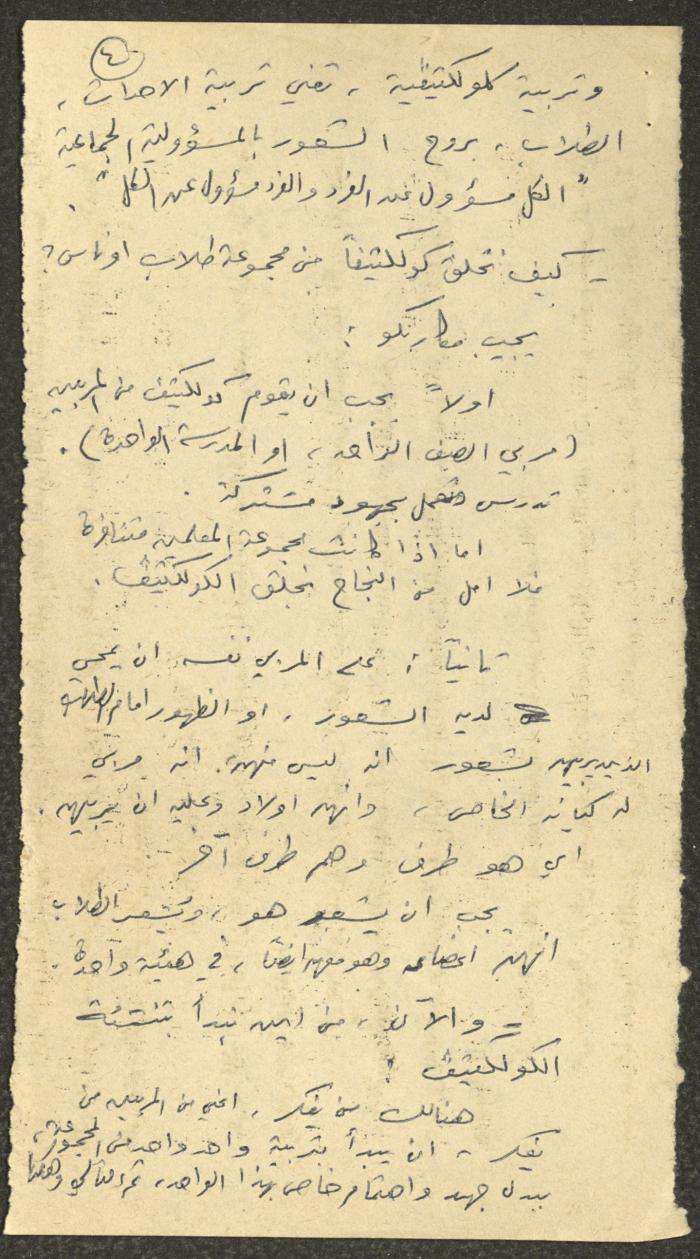 ٤
وتربية كلولكتيفية ، تعني تربية الاحداث ،
الطلاب ، بروح الشعور بالمسؤولية الجماعية
" الكل مسؤول عن الفرد والفرد مسؤول عن الكل " .
- كيف نخلق كولكتيفاً من مجموعة طلاب او ناس ؟
يجيب مكارنكو :
اولاً يجب ان يقوم كولكتيف من المربين
( مربي الصف الواحد ، او المدرسة الواحدة ) .
تدرس وتعمل بجهود مشتركة .
اما اذا كانت مجموعة المعلمين متنافرة
فلا امل من النجاح بخلق الكولكتيف .
ثانياً : على المربي نفسه ان يمحي
لديه الشعور ، او الظهور امام الطلاب
الذين يربيهم بشعور انه ليس منهم . انه مربي
له كيانه الخاص ، وانهم اولاد وعليه ان يربيهم .
اي هو طرف وهم طرف آخر
يجب ان يشعر هو ، ويشعر الطلاب
انهم اعضاء وهو معهم ايضاً ، في هيئة واحدة .
= والآن ، من اين نبدأ بتنشئة
الكولكتيف ؟
هنالك من يفكر ، اعني من المربين من
يفكر ، ان يبدأ بتربية واحد واحد من المجموعة ،
ببذل جهد واهتمام خاص بهذا الواحد ، ثم التالي وهكذا